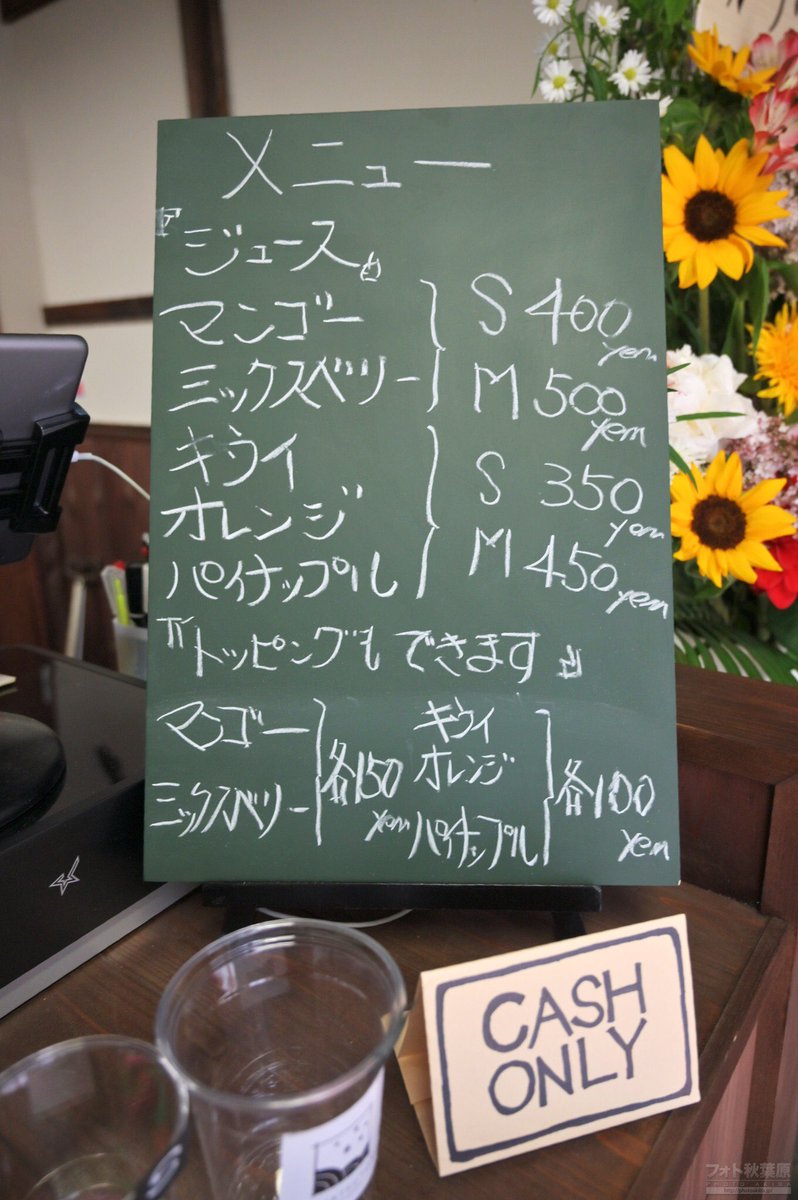 メニュー
『ジュース』
マンゴー
ミックスベリー
S 400 yen
M 500 yen
キウイ
オレンジ
パイナップル
S 350 yen
M 450 yen
『トッピングもできます』
マンゴー
ミックスベリー
各150 yen
キウイ
オレンジ
パイナップル
各100 yen
CASH
ONLY
フォト秋葉原